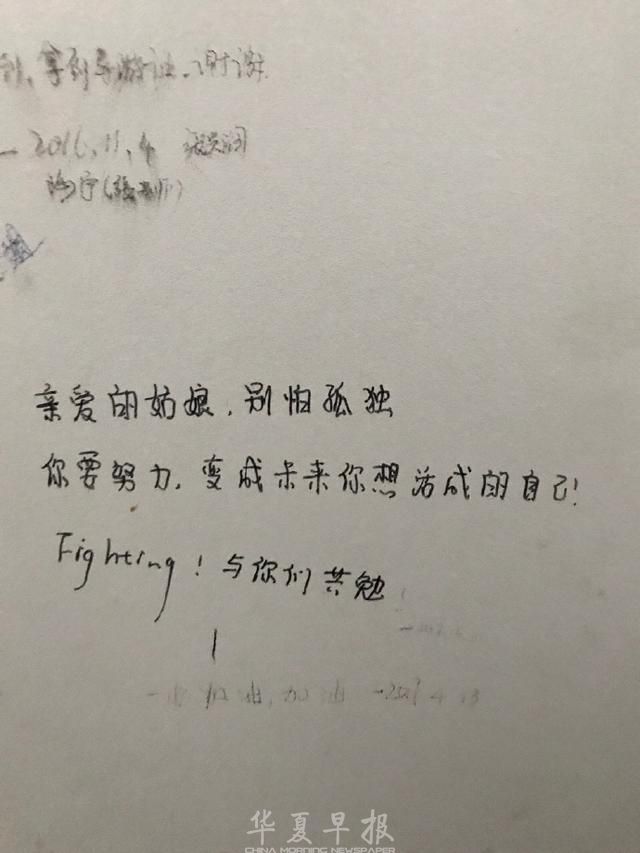 拿到导游证。谢谢
2016.11.4
亲爱的姑娘，别怕孤独
你要努力，变成未来你想活成的自己！
Fighting！与你们共勉
加油，加油
华夏早报
CHINA MORNING NEWSPAPER